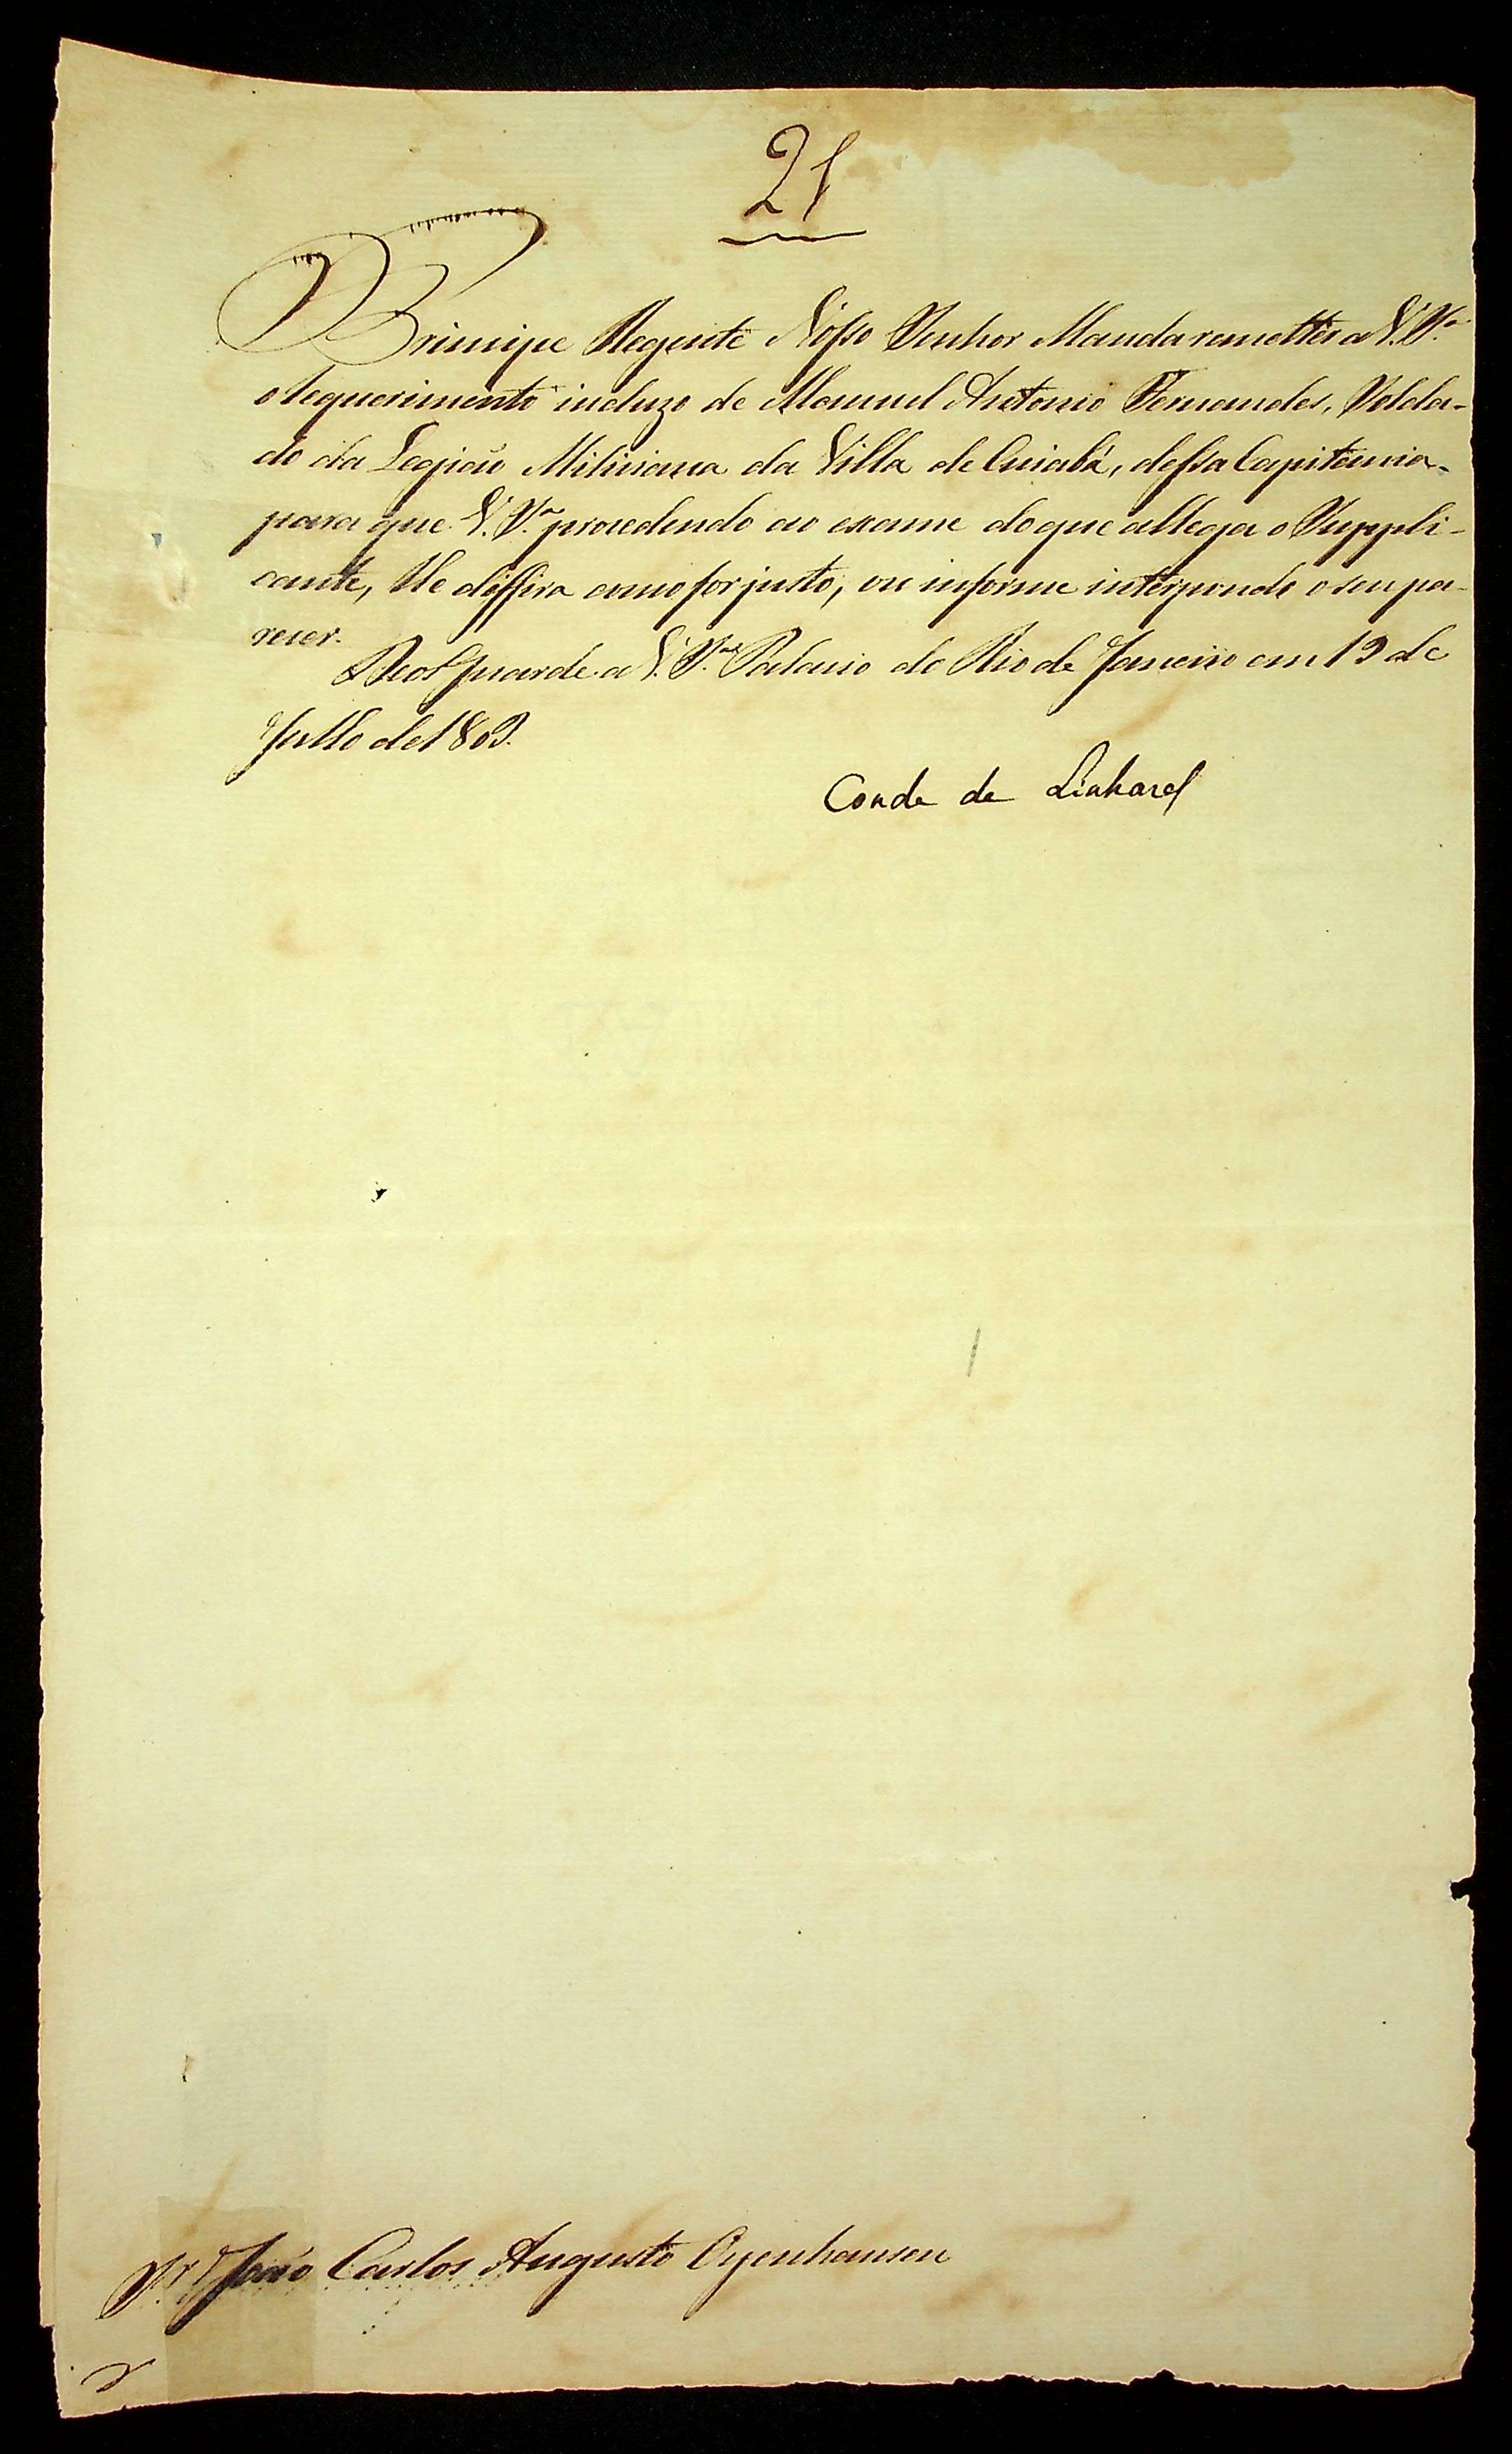 21
Principe Regente Nosso Senhor Manda remetter a V. S.ª
o Requerimento incluzo de Manuel Antonio Fernandes, Solda-
do da Legiaõ Miliciana da Villa de Cuiabá, dessa Capitania,
para que V. S.ª procedendo ao exame do que allega o Suppli-
cante, lhe diffira como for justo, ou informe interpondo o seu pa-
recer.
Deos Guarde a V. S.ª Palacio do Rio de Janeiro em 19 de
Julho de 1809.
Conde de Linhares
Sr. João Carlos Augusto Oyenhausen